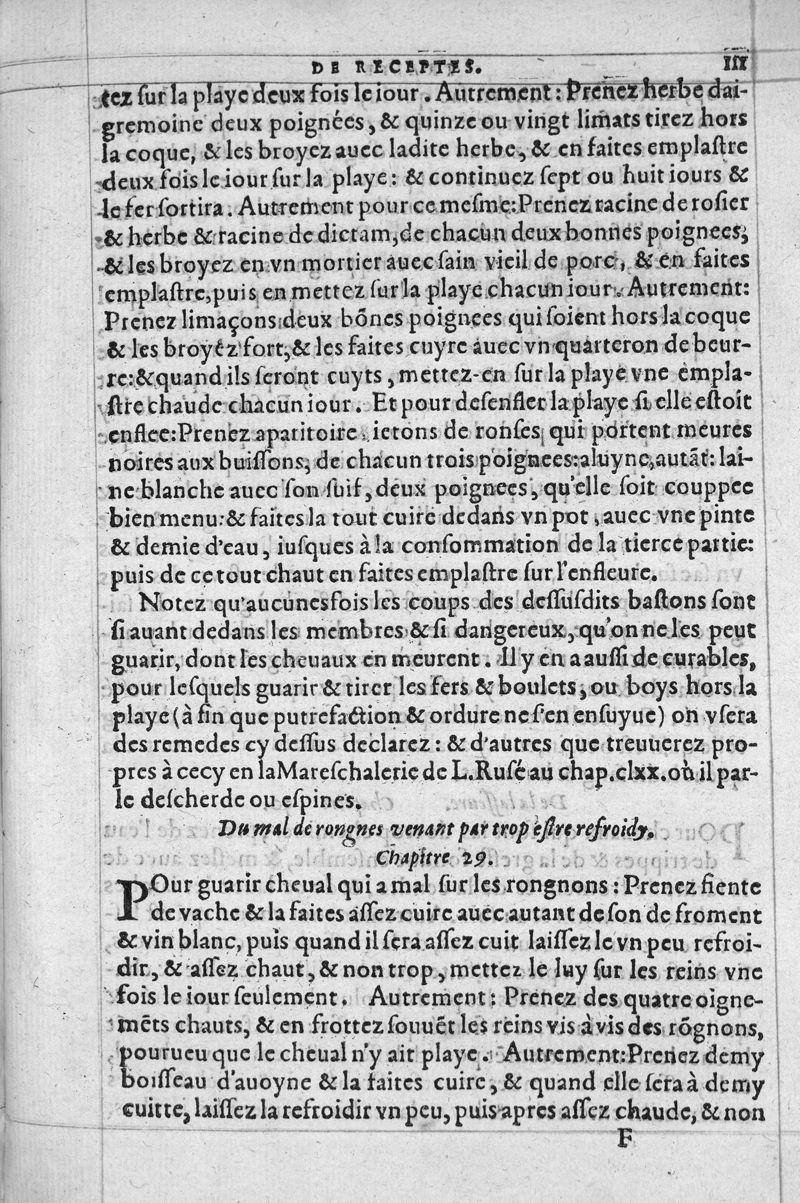 DE RECEPTES. III
tez ſur la playe deux fois le iour. Autrement: Prenez herbe dai-
gremoine deux poignées, & quinze ou vingt limats tirez hors
la coque, & les broyez auec ladite herbe, & en faites emplaſtre
deux fois le iour ſur la playe: & continuez ſept ou huit iours &
le fer ſortira. Autrement pour ce meſme: Prenez racine de roſier
& herbe & racine de dictam, de chacun deux bonnes poignees,
& les broyez en vn mortier auec ſain vieil de porc, & en faites
emplaſtre, puis en mettez ſur la playe chacun iour. Autrement:
Prenez limaçons deux bõnes poignees qui ſoient hors la coque
& les broyéz fort, & les faites cuyre auec vn quarteron de beur-
re: & quand ils ſeront cuyts, mettez-en ſur la playe vne empla-
ſtre chaude chacun iour. Et pour deſenfler la playe ſi elle eſtoit
enflee: Prenez aparitoire, ietons de ronſes, qui portent meures
noires aux buiſſons, de chacun trois poignees: aluyne, autãt: lai-
ne blanche auec ſon ſuif, deux poignees, qu'elle ſoit couppee
bien menu: & faites la tout cuire dedans vn pot, auec vne pinte
& demie d'eau, iuſques à la conſommation de la tierce partie:
puis de ce tout chaut en faites emplaſtre ſur l'enfleure.
Notez qu'aucunesfois les coups des deſſuſdits baſtons ſont
ſi auant dedans les membres & ſi dangereux, qu'on ne les peut
guarir, dont les cheuaux en meurent. Il y en a auſſi de curables,
pour leſquels guarir & tirer les fers & boulets, ou boys hors la
playe (à fin que putrefaction & ordure ne ſ'en enſuyue) on vſera
des remedes cy deſſus declarez: & d'autres que treuuerez pro-
pres à cecy en la Mareſchalerie de L. Ruſé au chap. clxx. où il par-
le deſcherde ou eſpines.
Du mal de rongnes venant par trop eſtre refroidy.
Chapitre 29.
POur guarir cheual qui a mal ſur les rongnons: Prenez fiente
de vache & la faites aſſez cuire auec autant de ſon de froment
& vin blanc, puis quand il ſera aſſez cuit laiſſez le vn peu refroi-
dir, & aſſez chaut, & non trop, mettez le luy ſur les reins vne
fois le iour ſeulement. Autrement: Prenez des quatre oigne-
mẽts chauts, & en frottez ſouuẽt les reins vis à vis des rõgnons,
pourueu que le cheual n'y ait playe. Autrement: Prenez demy
boiſſeau d'auoyne & la faites cuire, & quand elle ſera à demy
cuitte, laiſſez la refroidir vn peu, puis apres aſſez chaude, & non
F